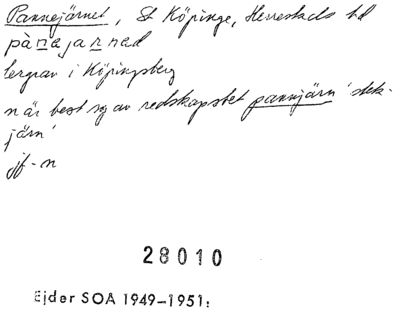 Pannejärnet, St Köpinge, Herrestads hd
pànejarned
lergrav i Köpingsberg
när best sg av redskapsbet pannjärn 'stek-
järn'
jf-n
28010
Ejder SOA 1949-1951: